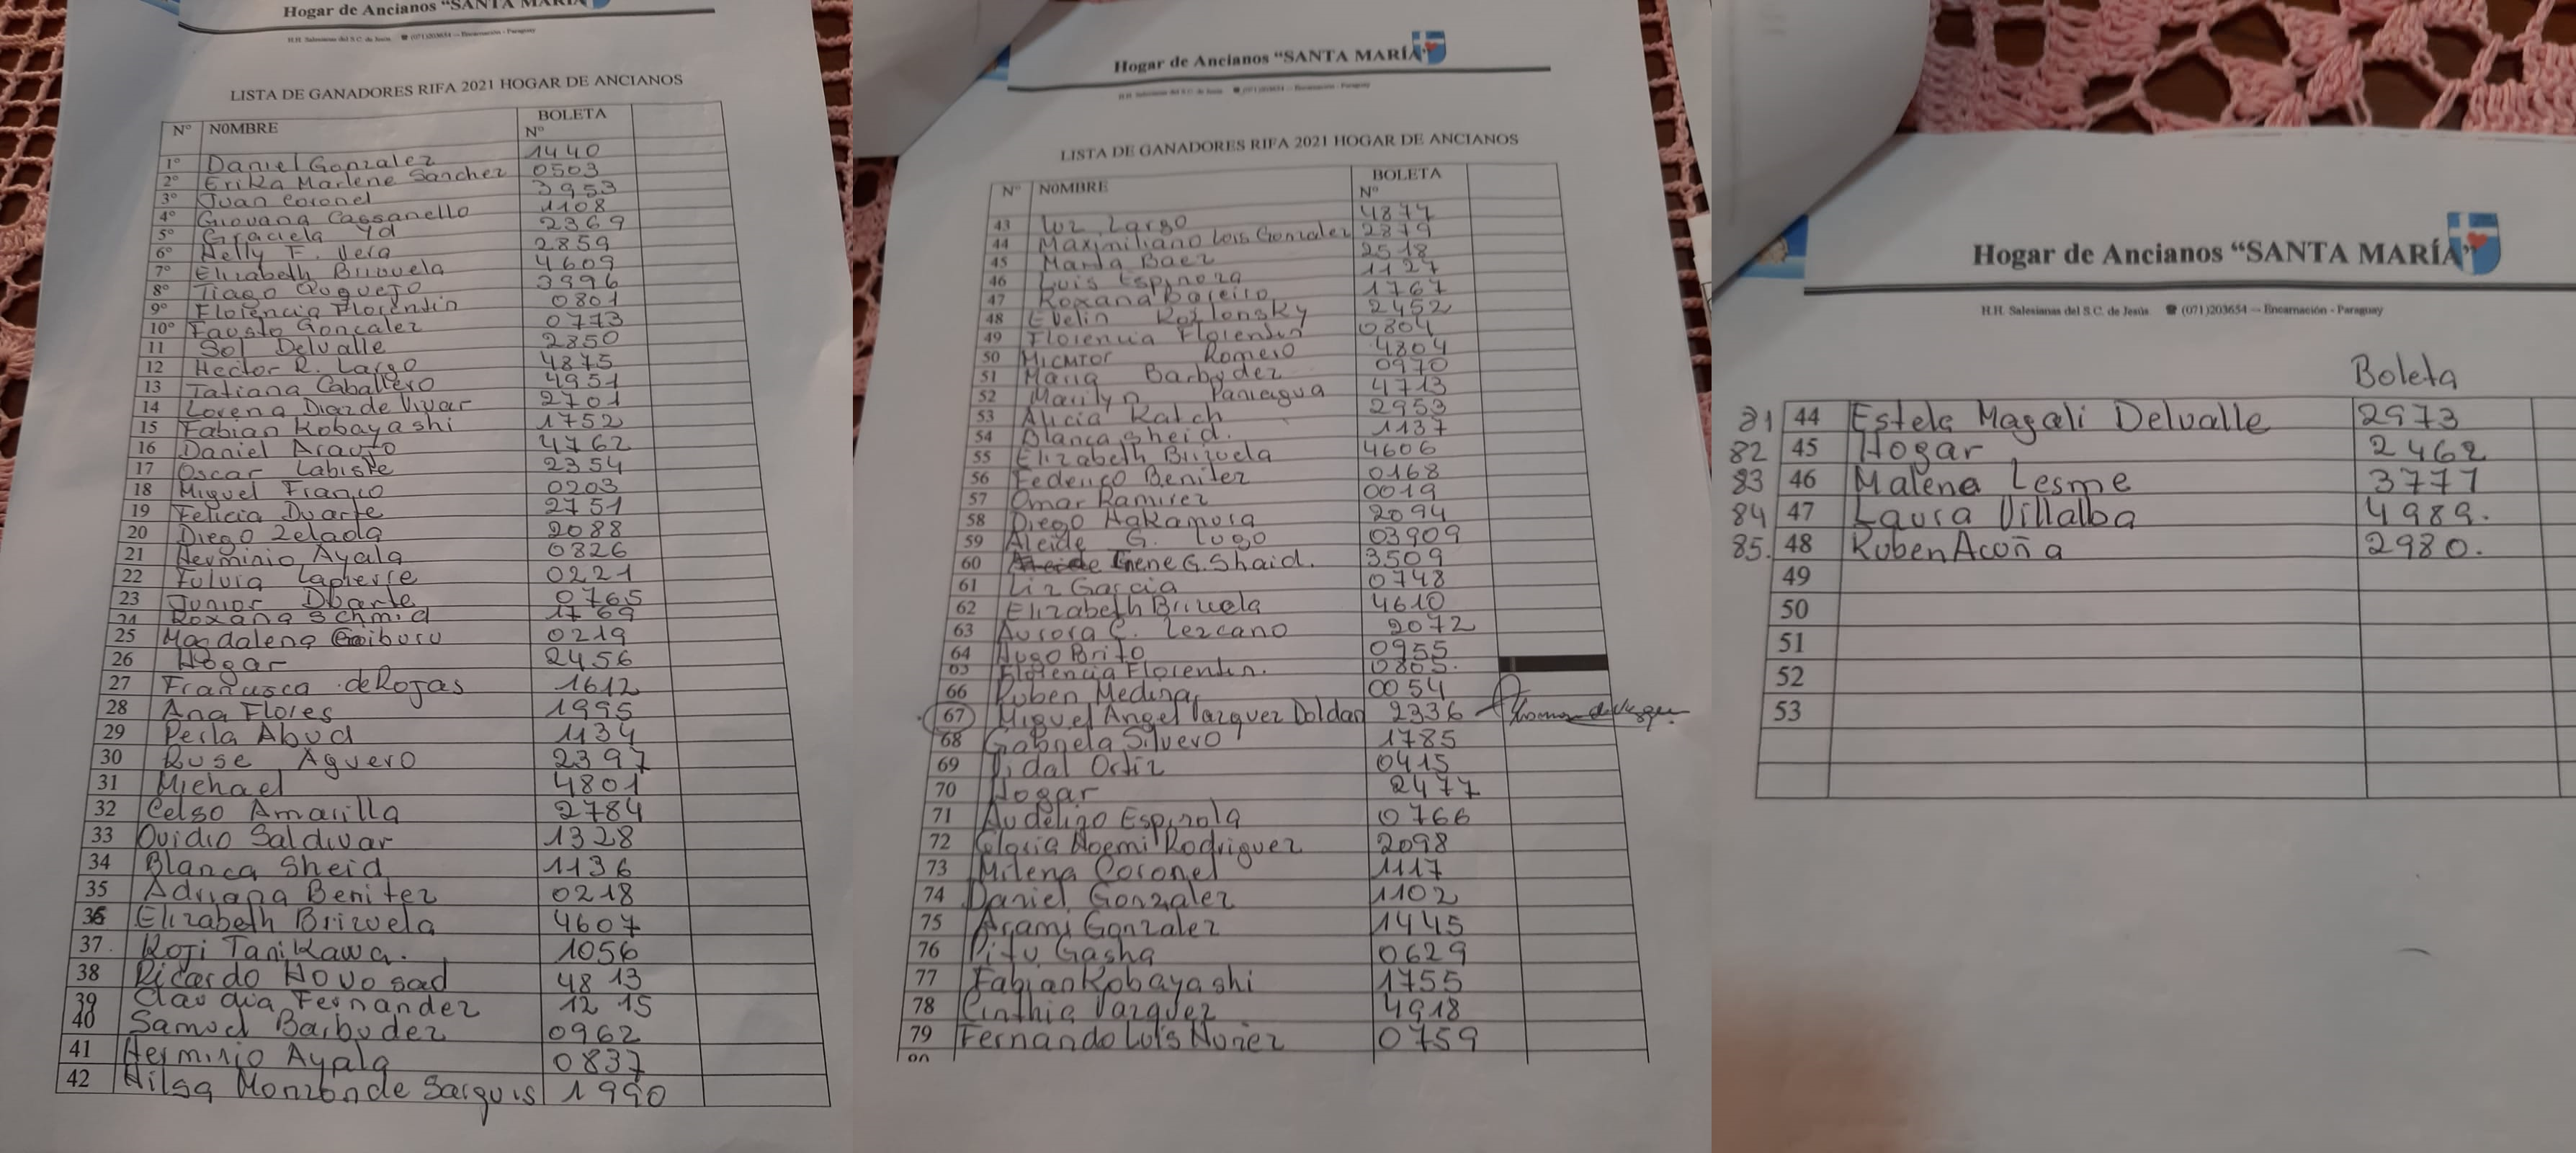 Hogar de Ancianos "SANTA MARÍA"
H.H. Salesianas del S.C. de Jesús ☎ (071)203654 – Encarnación - Paraguay
LISTA DE GANADORES RIFA 2021 HOGAR DE ANCIANOS
N° NOMBRE BOLETA N°
1° Daniel Gonzalez 1440
2° Erika Marlene Sanchez 0503
3° Juan Coronel 3953
4° Giovana Cassanello 1108
5° Graciela Yd 2369
6° Nelly F. Vera 2859
7° Elizabeth Brizuela 4609
8° Tiago 3996
9° Florencia Florentin 0801
10° Fausto Goncalez 0773
11 Sol Delvalle 2850
12 Hector R. Largo 4875
13 Tatiana Caballero 4951
14 Lorena Diaz de Vivar 2701
15 Fabian Kobayashi 1752
16 Daniel Araujo 4762
17 Oscar Labiste 2354
18 Miguel Franco 0203
19 Felicia Duarte 2751
20 Diego Zelada 2088
21 Herminio Ayala 0826
22 Fulvia Lapierre 0221
23 Junior Duarte 0765
24 Roxana Schmid 1769
25 Magdalena 0219
26 Hogar 2456
27 Francisca de Rojas 1612
28 Ana Flores 1995
29 Perla Abud 1134
30 Ruse Aguero 2397
31 Michael 4801
32 Celso Amarilla 2784
33 Ovidio Saldivar 1328
34 Blanca Sheid 1136
35 Adriana Benitez 0218
36 Elizabeth Brizuela 4607
37. Koji Tanikawa. 1056
38 Ricardo Novosad 4813
39 Claudia Fernandez 1215
40 Samuel Barbudez 0962
41 Herminio Ayala 0837
42 Nilsa Monzon de Sarquis 1990
Hogar de Ancianos "SANTA MARÍA"
H.H. Salesianas del S.C. de Jesús ☎ (071)203654 – Encarnación - Paraguay
LISTA DE GANADORES RIFA 2021 HOGAR DE ANCIANOS
N° NOMBRE BOLETA N°
43 Luz Largo 4877
44 Maximiliano Luis Gonzalez 2879
45 Marta Baez 2518
46 Luis Espinoza 1127
47 Roxana Bareiro 1767
48 Evelin Kozlonsky 2452
49 Florencia Florentin 0804
50 Romero 4804
51 Maria Barbudez 0970
52 Marilyn Paniagua 4713
53 Alicia Katch 2953
54 Blanca Sheid. 1137
55 Elizabeth Brizuela 4606
56 Federico Benitez 0168
57 Omar Ramirez 0019
58 Diego Nakamura 2094
59 Aleide G. Lugo 03909
60 Irene G. Shaid. 3509
61 Liz Garcia 0748
62 Elizabeth Brizuela 4610
63 Aurora C. Lezcano 2072
64 Hugo Brito 0955
65 Florencia Florentin. 0805.
66 Ruben Medina 0054
67 Miguel Angel Vazquez Doldan 2336
68 Gabriela Silvero 1785
69 Vidal Ortiz 0415
70 Hogar 2477
71 Audeligo Espinola 0766
72 Gloria Noemi Rodriguez 2098
73 Milena Coronel 1117
74 Daniel Gonzalez 1102
75 Arami Gonzalez 1445
76 Pitu Gasha 0629
77 Fabian Kobayashi 1755
78 Cinthia Vazquez 4918
79 Fernando Luis Nuñez 0759
Hogar de Ancianos "SANTA MARÍA"
H.H. Salesianas del S.C. de Jesús ☎ (071)203654 – Encarnación - Paraguay
Boleta
81 44 Estela Magali Delvalle 2973
82 45 Hogar 2462
83 46 Malena Lesme 3777
84 47 Laura Villalba 4989.
85. 48 Ruben Acoña 2980.
49
50
51
52
53